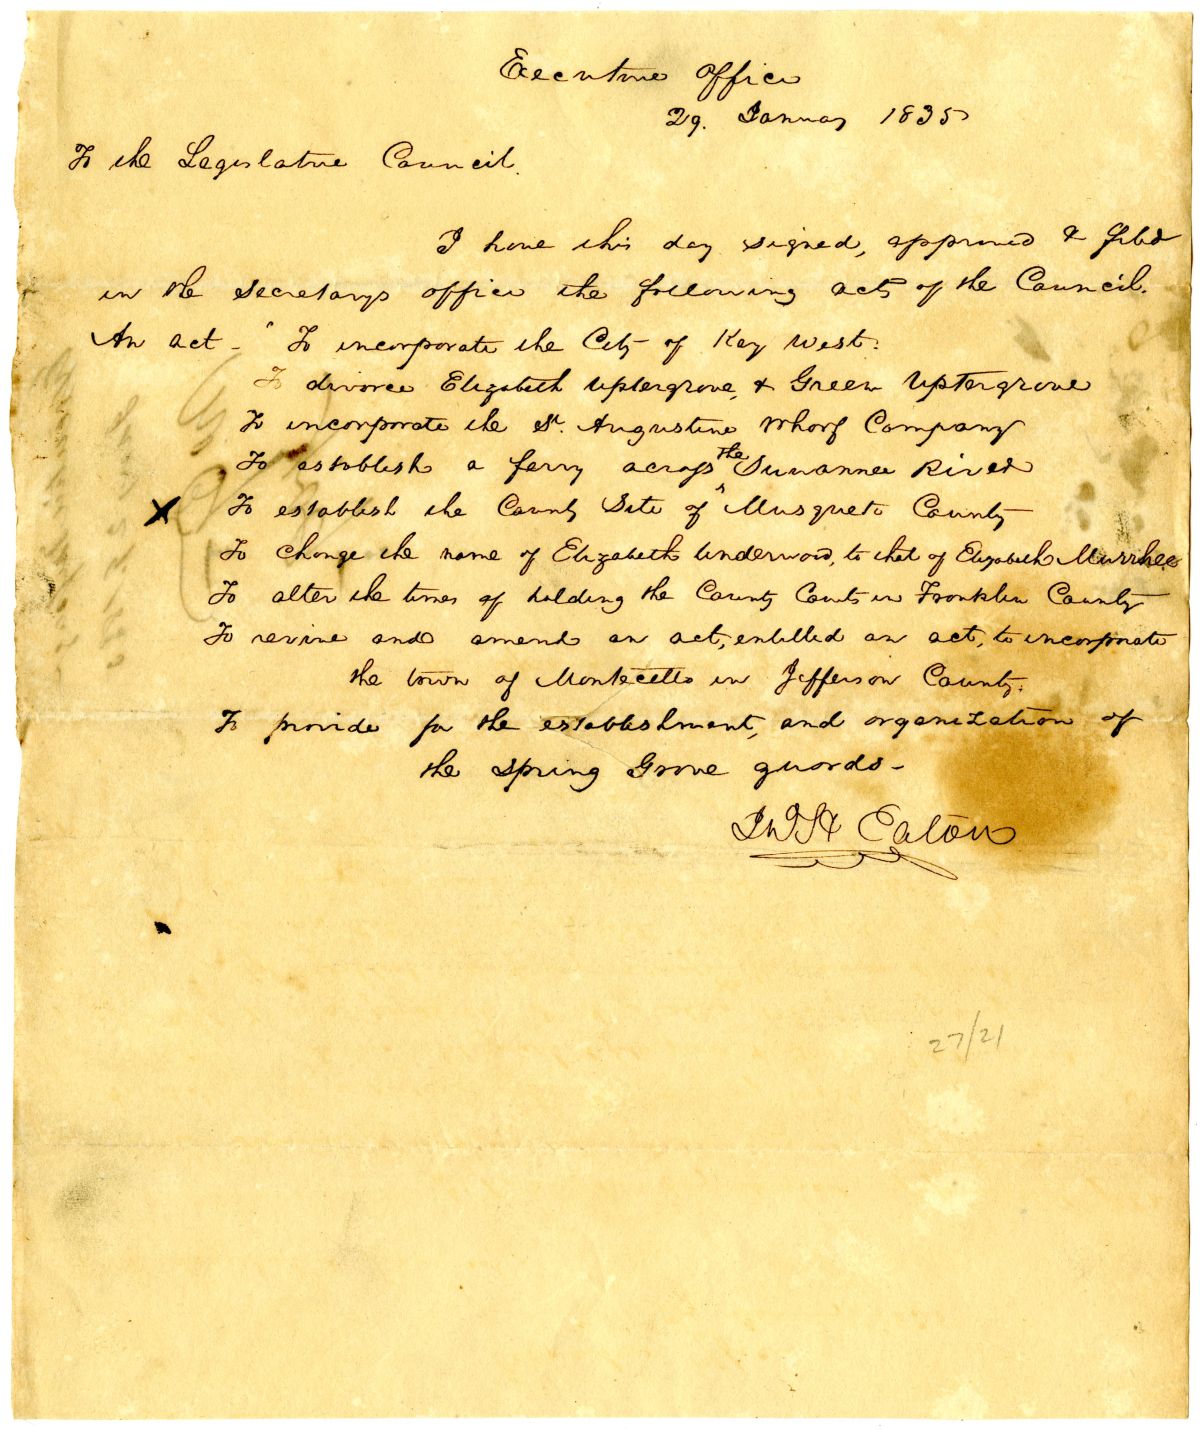 Executive Office
29. January 1835
To the Legislative Council.
I have this day signed, approved & filed
in the Secretarys office the following acts of the Council.
An act - " To incorporate the City of Key West.
To divorce Elizabeth Uptergrove, & Green Uptergrove
To incorporate the St. Augustine Wharf Company
To establish a ferry across the Suwannee River
X To establish the County Site of Musqueto County
To change the name of Elizabeth Underwood, to that of Elizabeth Murrhee
To alter the times of holding the County Courts in Franklin County
To revive and amend an act, entitled an act, to incorporate
the town of Montecello in Jefferson County.
To provide for the establishment, and organization of
the Spring Grove guards -
Jno H Eaton
27/21